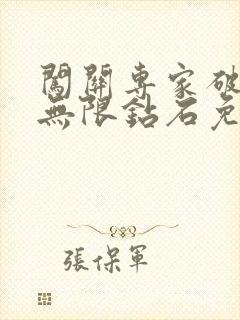 闖關專家破
無限鉆石免
張保軍